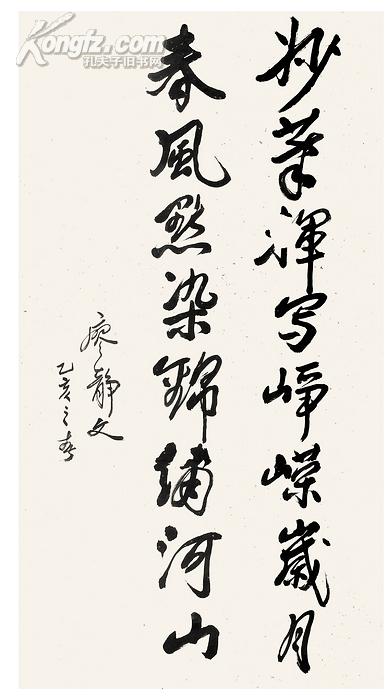 Kongfz.com
孔夫子旧书网
妙筆揮写崢嶸歲月
春風點染錦繡河山
廖静文
乙亥之春